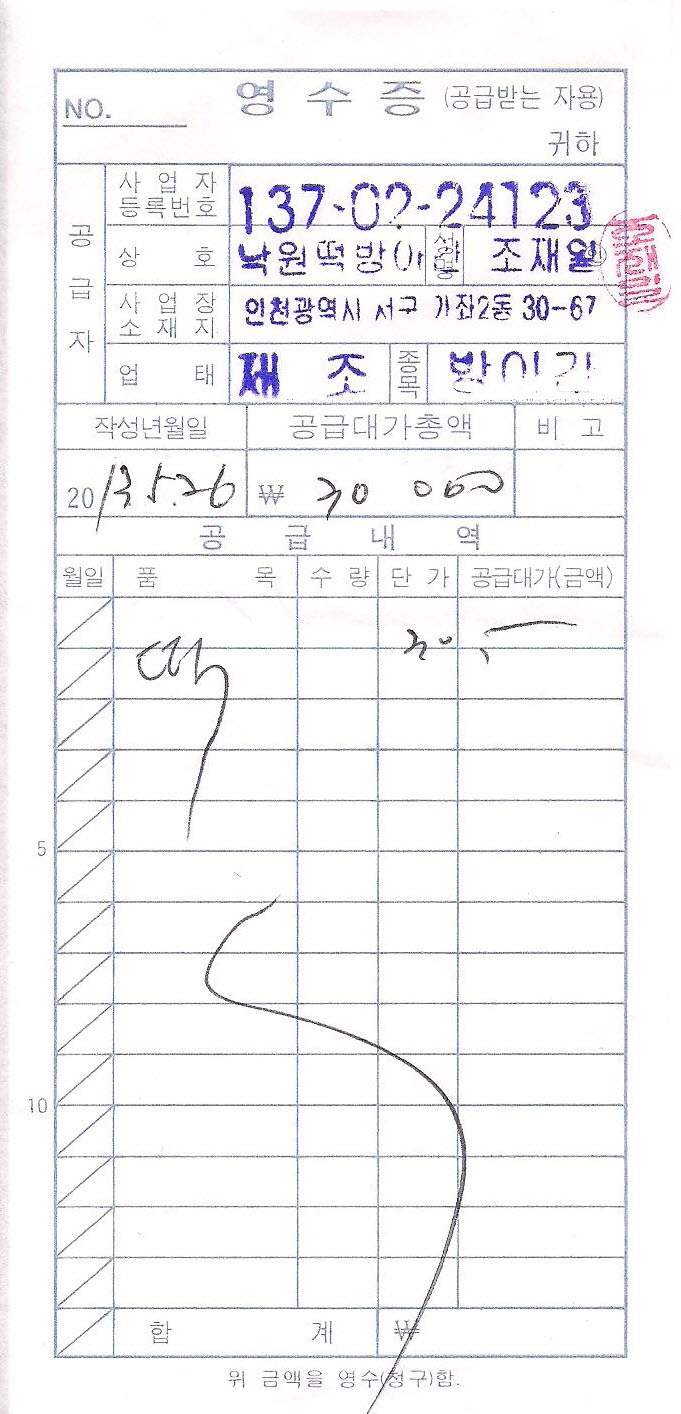 NO.
영 수 증 (공급받는 자용)
귀하
공급자
사업자등록번호 137-02-24123
상 호 낙원떡방 성명 조재일
사업장소재지 인천광역시 서구 가좌2동 30-67
업 태 제 조 종목 방
작성년월일 공급대가총액 비 고
2013.5.26 ₩ 30 000
공 급 내 역
월일 품 목 수 량 단 가 공급대가(금액)
떡 30,
5
10
합 계 ₩
위 금액을 영수(청구)함.